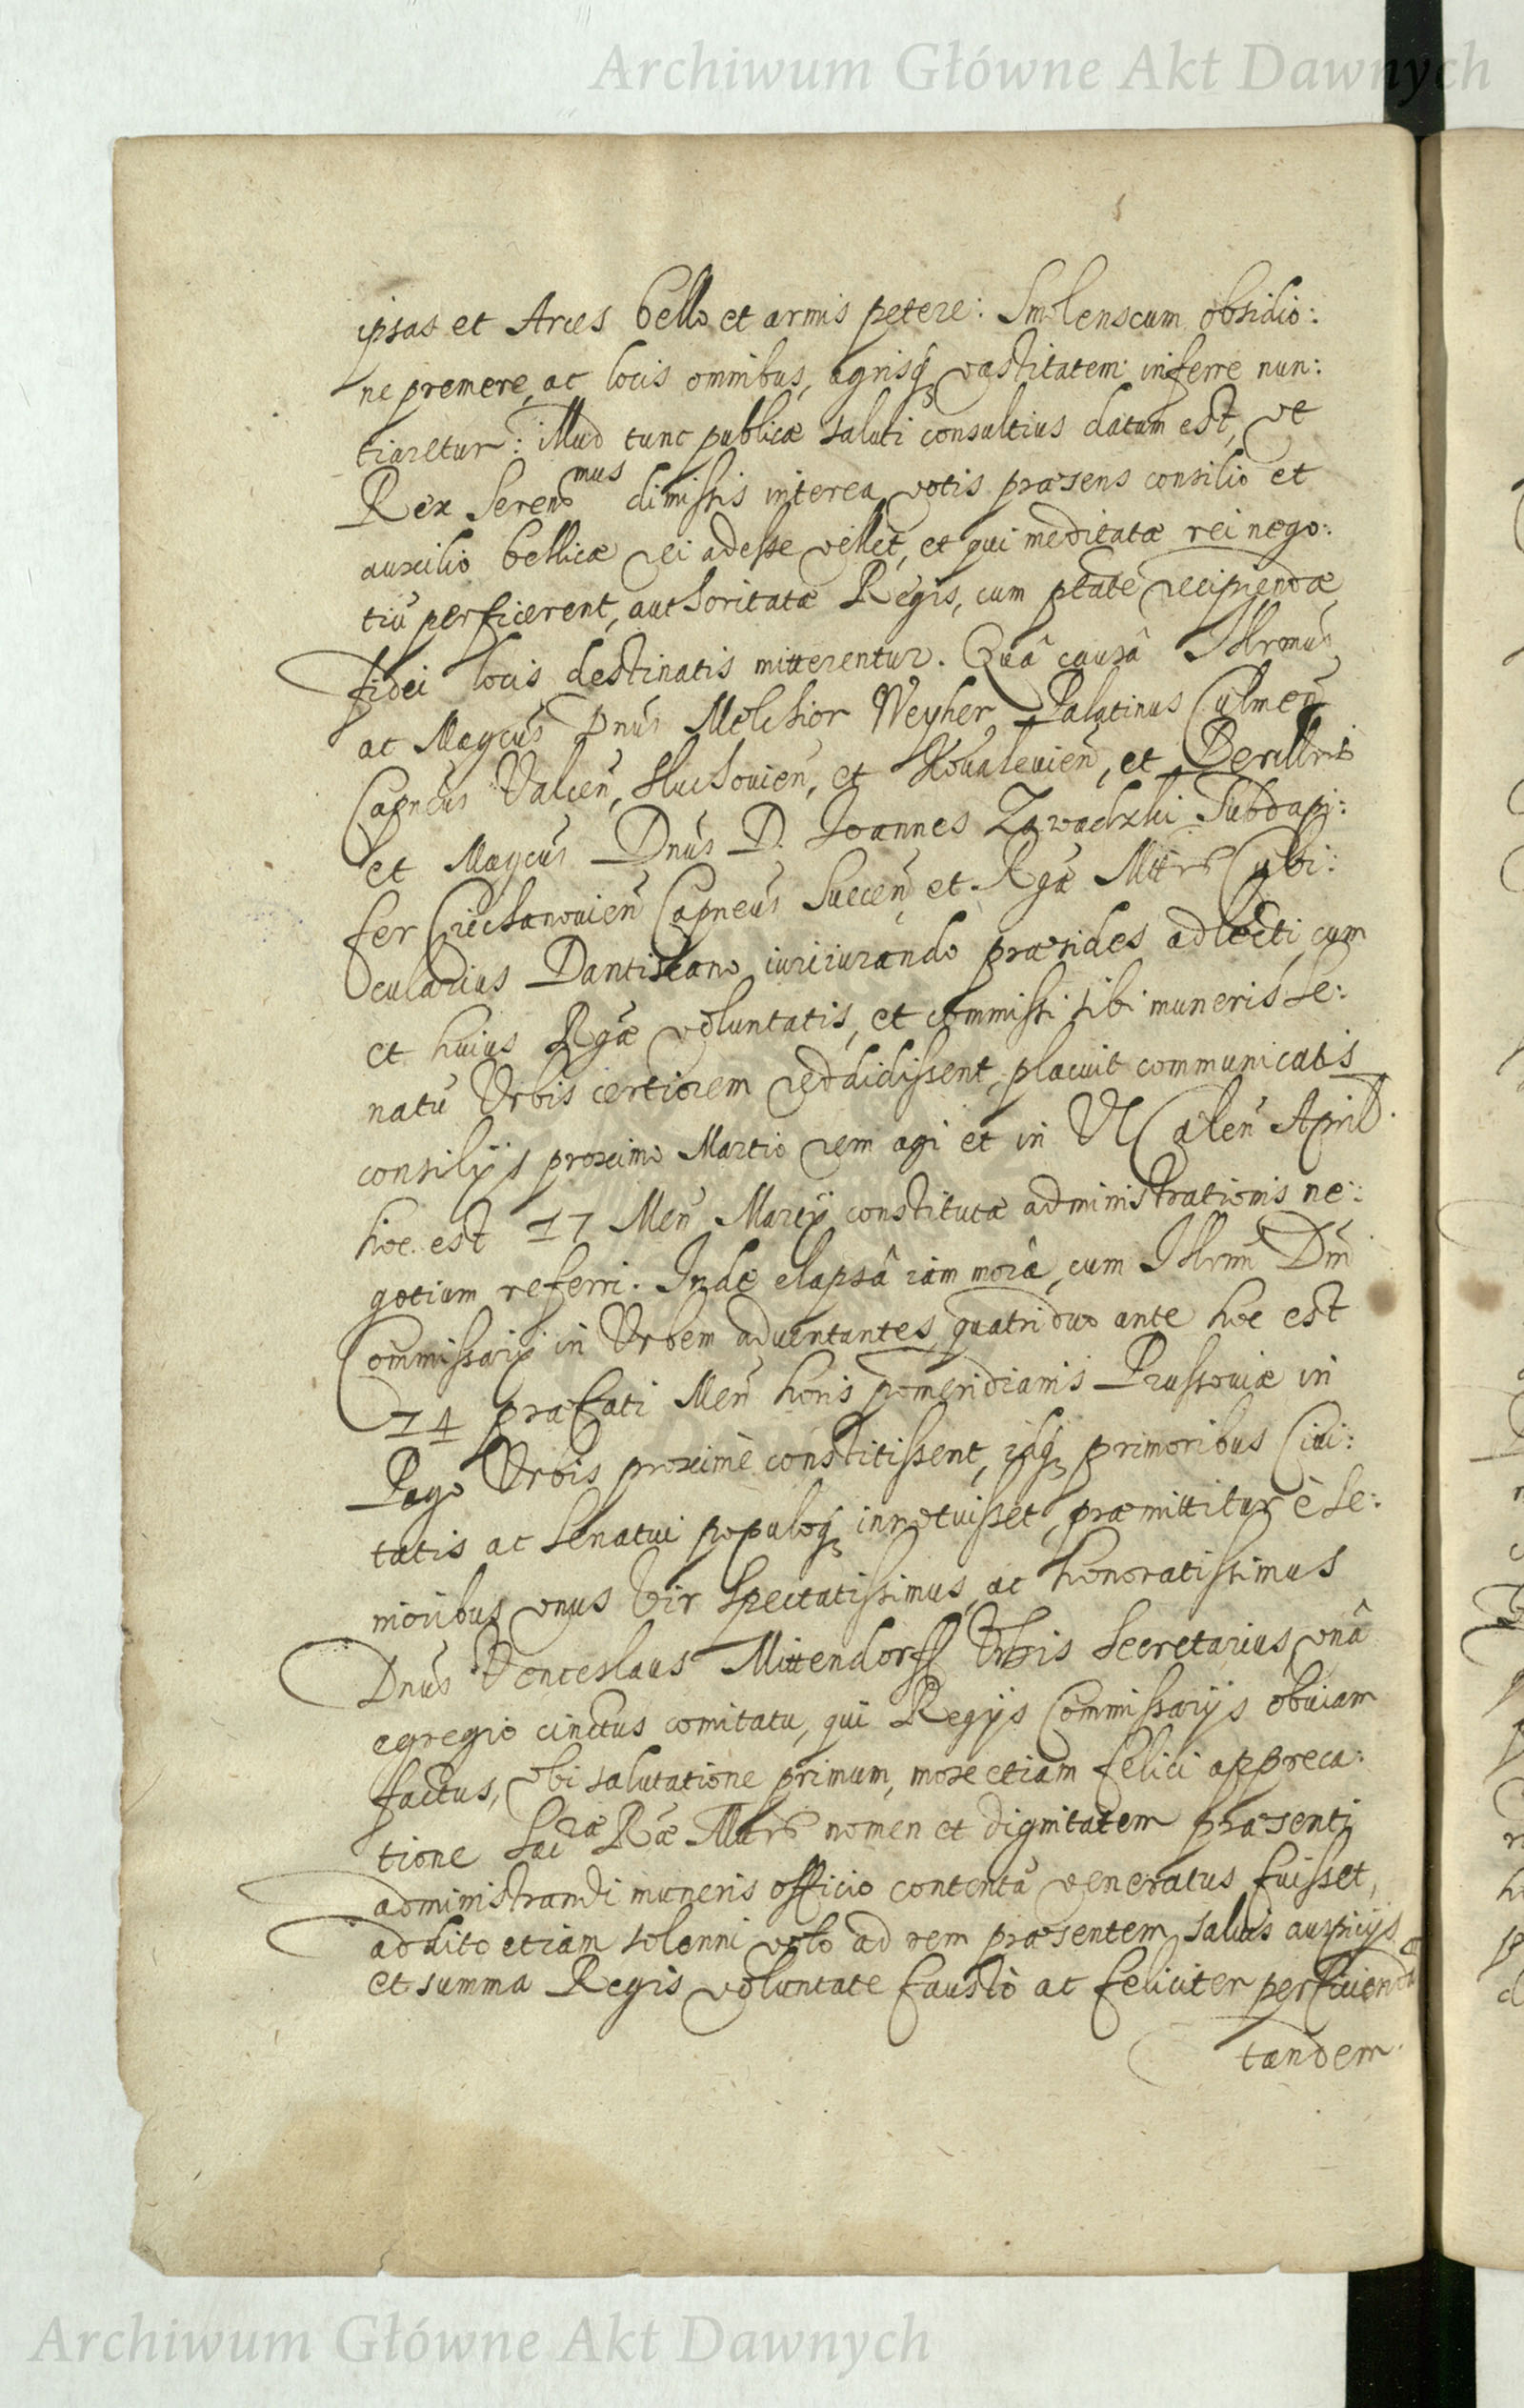 Archiwum Główne Akt Dawnych
ipsas et Arces bello et armis petere: Smolenscum obsidio:
ne premere, ac locis omnibus, agrisq vastitatem inferre nun:
tiaretur: illud tunc publicæ saluti consultius datum est, ut
Rex Seren̄mus dimissis interea votis præsens consilio et
auxilio bellicæ rei adesse vellet, et qui meditatæ rei nego:
tiū perficerent, authoritate Regis, cum ptāte recipiendæ
fidei locis destinatis mitterentur. Quâ causâ Illrmus
ac Magcus Dnus Melchior Weyher Palatinus Culmen̄
Capneus Valcen̄, Sluchovien̄, et Kovalevien̄, et
et Magcus Dnus D. Joannes Zawadzki Subdapi:
fer Ciechanovien̄ Capneus Suecen̄ et Rgæ Mttis Cubi:
cularius Dantiscano iuriiurando præsides adlecti, cum
et huius Rgæ voluntatis, et commissi sibi muneris Se:
natū Urbis certiorem reddidissent, placuit communicatis
consilijs proximo Martio rem agi et in VI Calen̄ April.
hoc est 17 Men̄ Martij constitutæ administrationis ne:
gotium referri. Inde elapsâ iam morâ, cum Illrmi Dni
Commissarij in Urbem adventantes, quatriduo ante hoc est
14 præfati Men̄ horis pomeridianis Prussoviæ in
Pago Urbis proximè constitissent, idq primoribus Civi:
tatis ac Senatui populoq innotuisset, præmittitur è Se:
nioribus unus Vir Spectatissimus, ac honoratissimus
Dnus Venceslaus Mittendorff Urbis Secretarius, unâ
egregio cinctus comitatu, qui Regijs Commissarijs obviam
factus, ubi salutatione primum, mox etiam felici appreca:
tione Sacræ Ræ Mttis nomen et dignitatem præsenti
administrandi muneris officio contentā veneratus fuisset,
addito etiam solenni voto ad rem præsentem salvis auspicijs
et summa Regis voluntate faustè ac feliciter perficiendā
tandem
Archiwum Główne Akt Dawnych